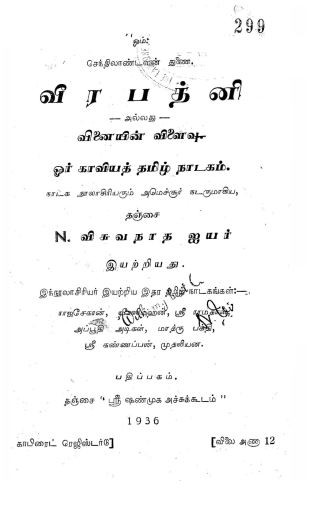 299
ஓம்:
செந்திலாண்டவன் துணை.
வீரபத்னி
— அல்லது —
வினையின் விளைவு
ஓர் காவியத் தமிழ் நாடகம்.
நாடக நூலாசிரியரும் அமெச்சூர் நடருமாகிய,
தஞ்சை
N. விசுவநாத ஐயர்
இயற்றியது.
இந்நூலாசிரியர் இயற்றிய இதர தமிழ் நாடகங்கள்:—
ராஜசேகரன், ஸ்ரீ
அப்பூதி அடிகள், மாத்ரு பக்தி,
ஸ்ரீ கண்ணப்பன், முதலியன.
பதிப்பகம்.
தஞ்சை "ஸ்ரீ ஷண்முக அச்சுக்கூடம்"
1936
காபிரைட் ரெஜிஸ்டர்ட்] [விலை அணா 12